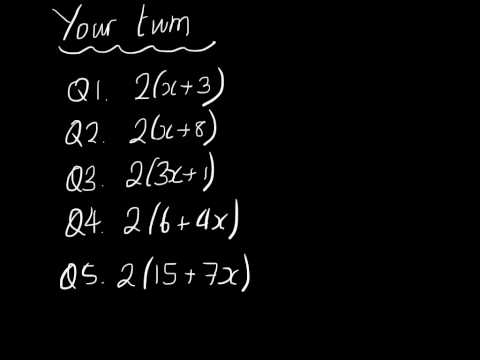 Your turn
Q1. 2(x+3)
Q2. 2(x+8)
Q3. 2(3x+1)
Q4. 2(6+4x)
Q5. 2(15+7x)